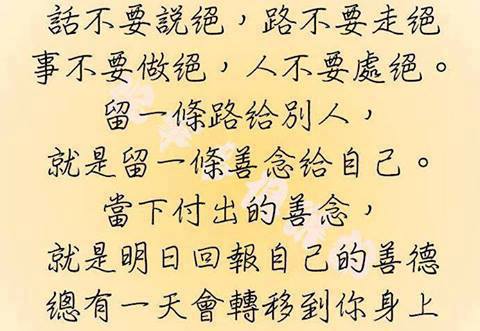 話不要說絕，路不要走絕
事不要做絕，人不要處絕。
留一條路給別人，
就是留一條善念給自己。
當下付出的善念，
就是明日回報自己的善德
總有一天會轉移到你身上